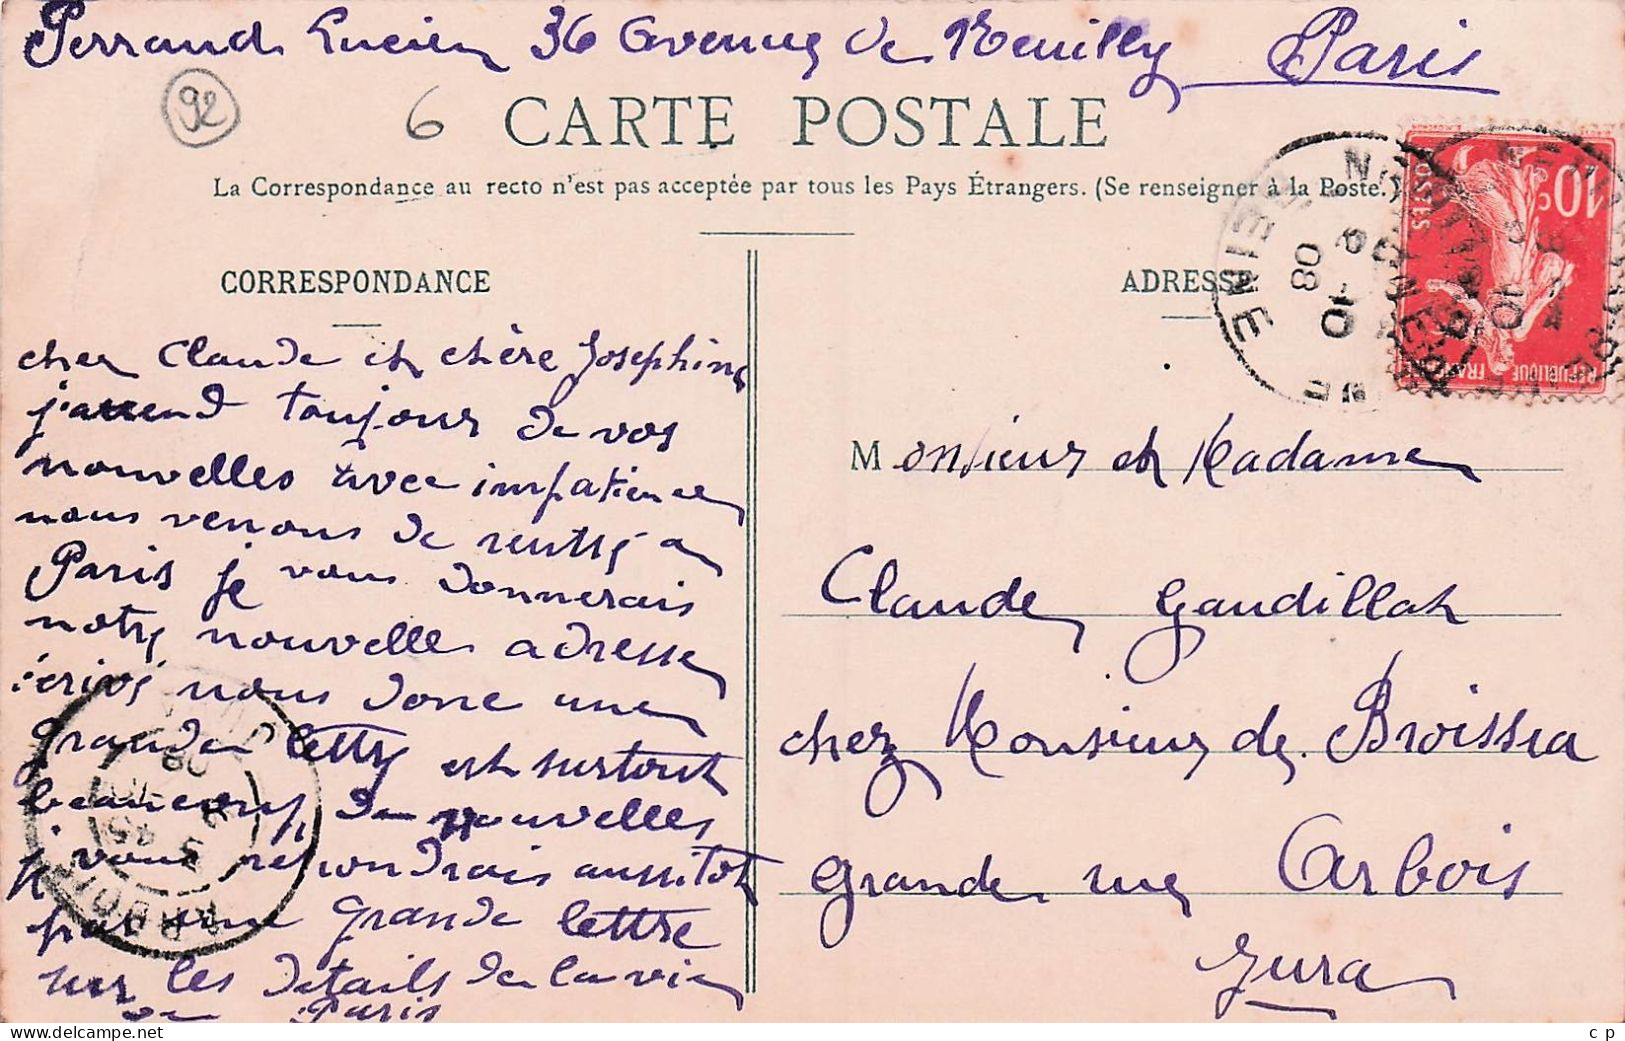 Perraud Lucien 36 Avenue de Neuilly Paris
92
6
CARTE POSTALE
La Correspondance au recto n'est pas acceptée par tous les Pays Étrangers. (Se renseigner à la Poste.)
CORRESPONDANCE
cher Claude et chère Josephine
j'attend toujour de vos
nouvelles avec impatience
nous venons de rentre a
Paris je vous donnerais
notre nouvelle adresse
écrivé nous donc une
grande lettre et surtout
beaucoup de nouvelles
je vous repondrais aussitot
par une grande lettre
sur les details de la vie
de Paris
ADRESSE
Monsieur et Madame
Claude Gaudillat
chez Monsieur de Broissia
grande rue Arbois
Jura
10c
POSTES
REPUBLIQUE FRANÇAISE
SEINE
10
08
ARBOIS
JURA
c p